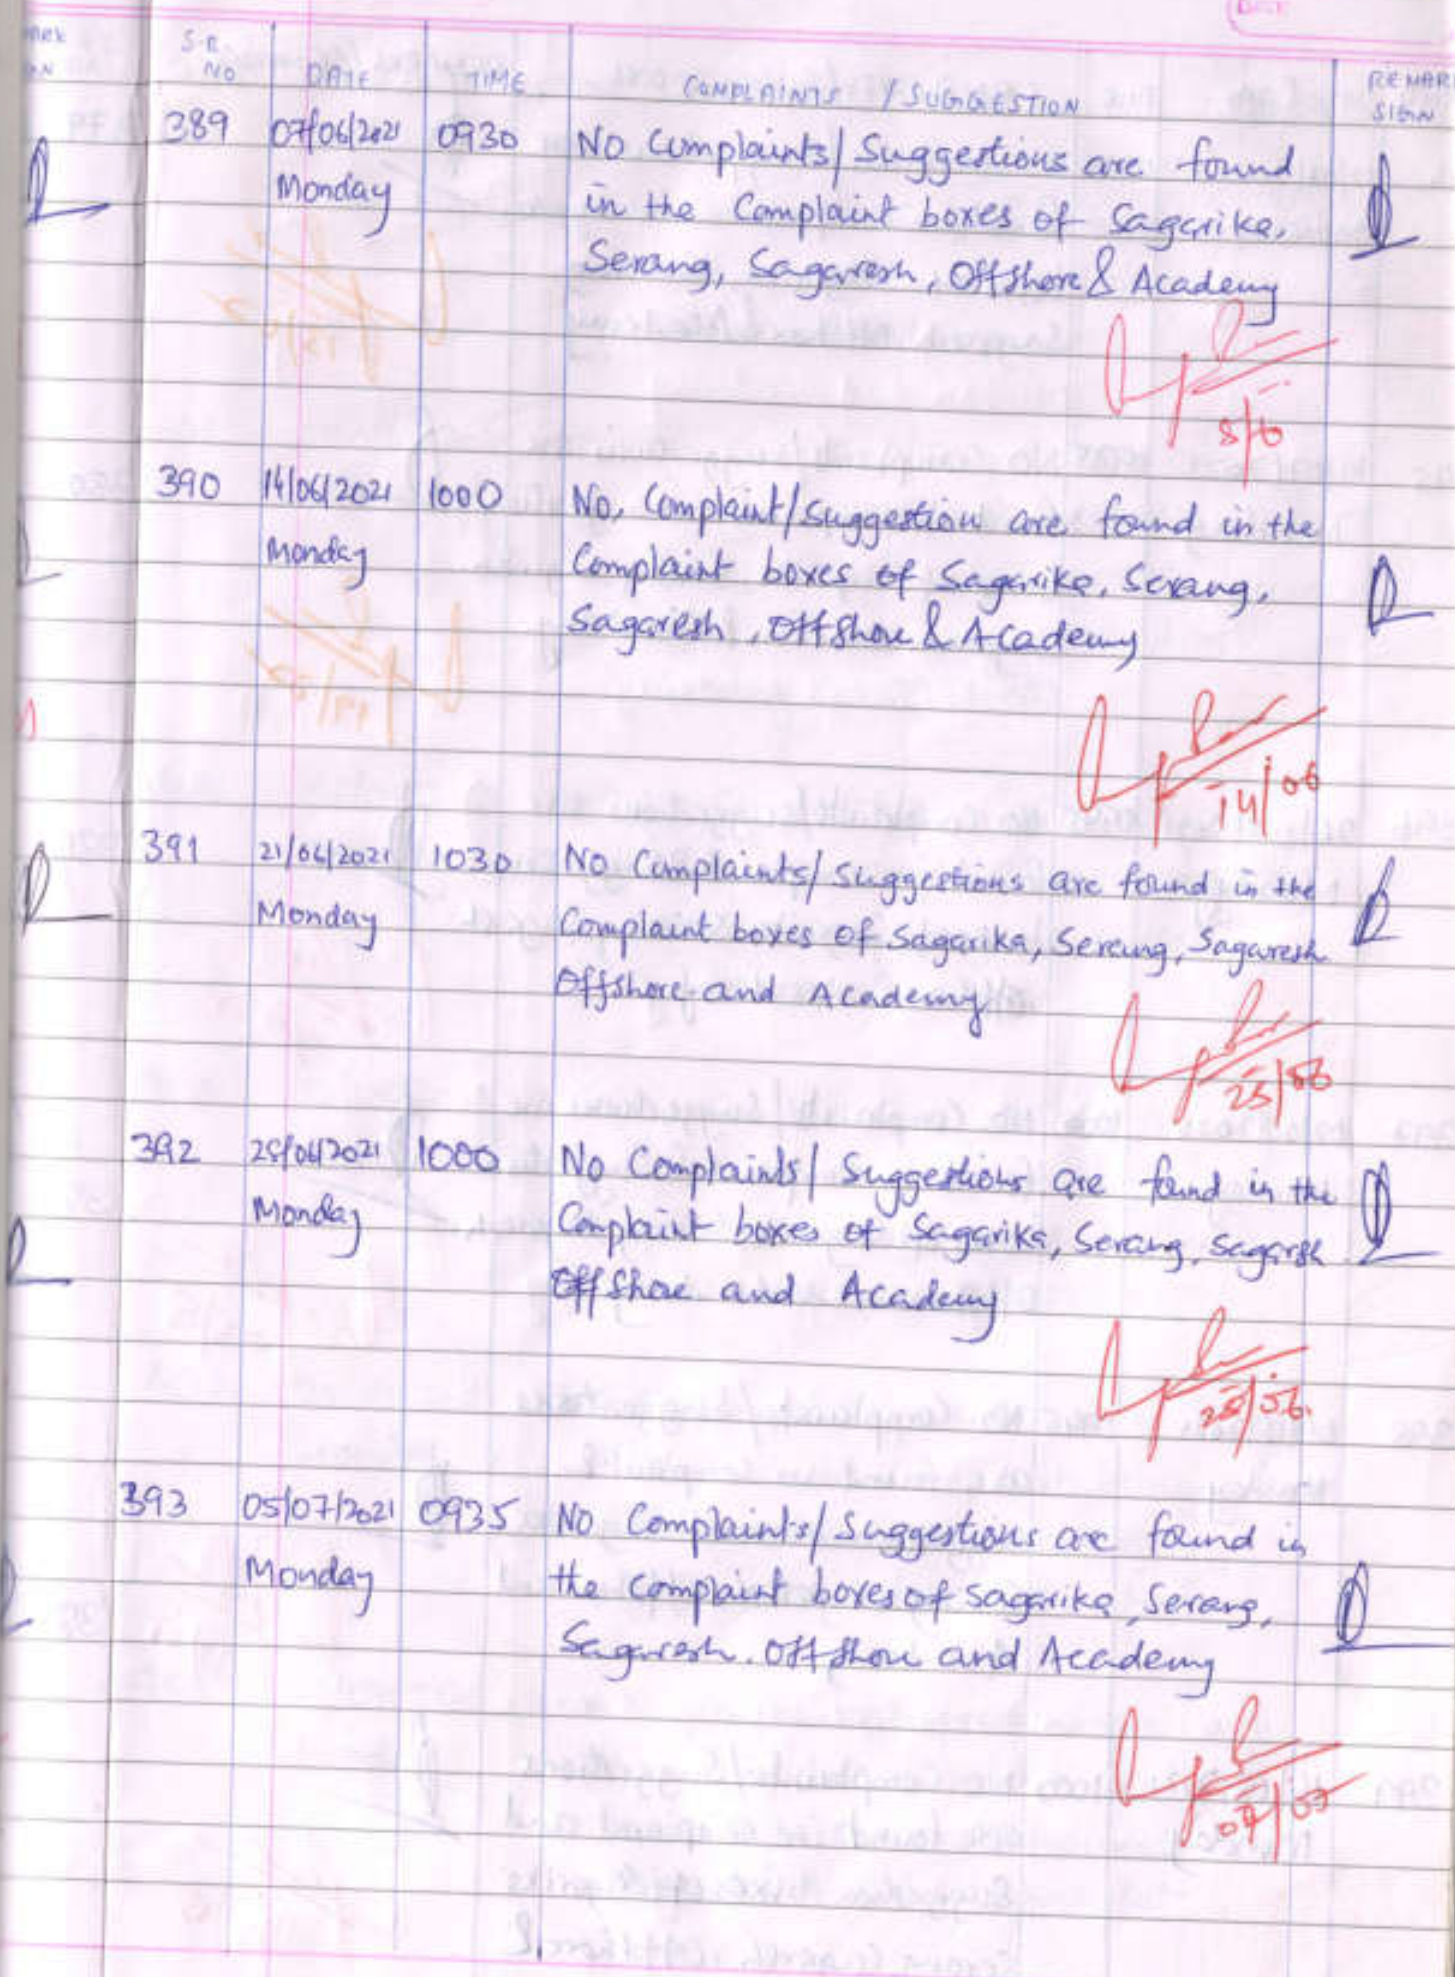 S.R. NO DATE TIME COMPLAINTS / SUGGESTION REMARK SIGN
389 07/06/2021 0930 No Complaints/ Suggestions are found
Monday in the Complaint boxes of Sagarika,
Serang, Sagaresh, Offshore & Academy
8/6
390 14/06/2021 1000 No, Complaint/Suggestion are found in the
Monday Complaint boxes of Sagarika, Serang,
Sagaresh, Offshore & Academy
14/06
391 21/06/2021 1030 No Complaints/ Suggestions are found in the
Monday Complaint boxes of Sagarika, Serang, Sagaresh
Offshore and Academy
25/06
392 28/06/2021 1000 No Complaints/ Suggestions are found in the
Monday Complaint boxes of Sagarika, Serang, Sagarsh
Offshore and Academy
28/06.
393 05/07/2021 0935 No Complaints/ Suggestions are found in
Monday the Complaint boxes of Sagarika, Serang,
Sagaresh. Offshore and Academy
07/07